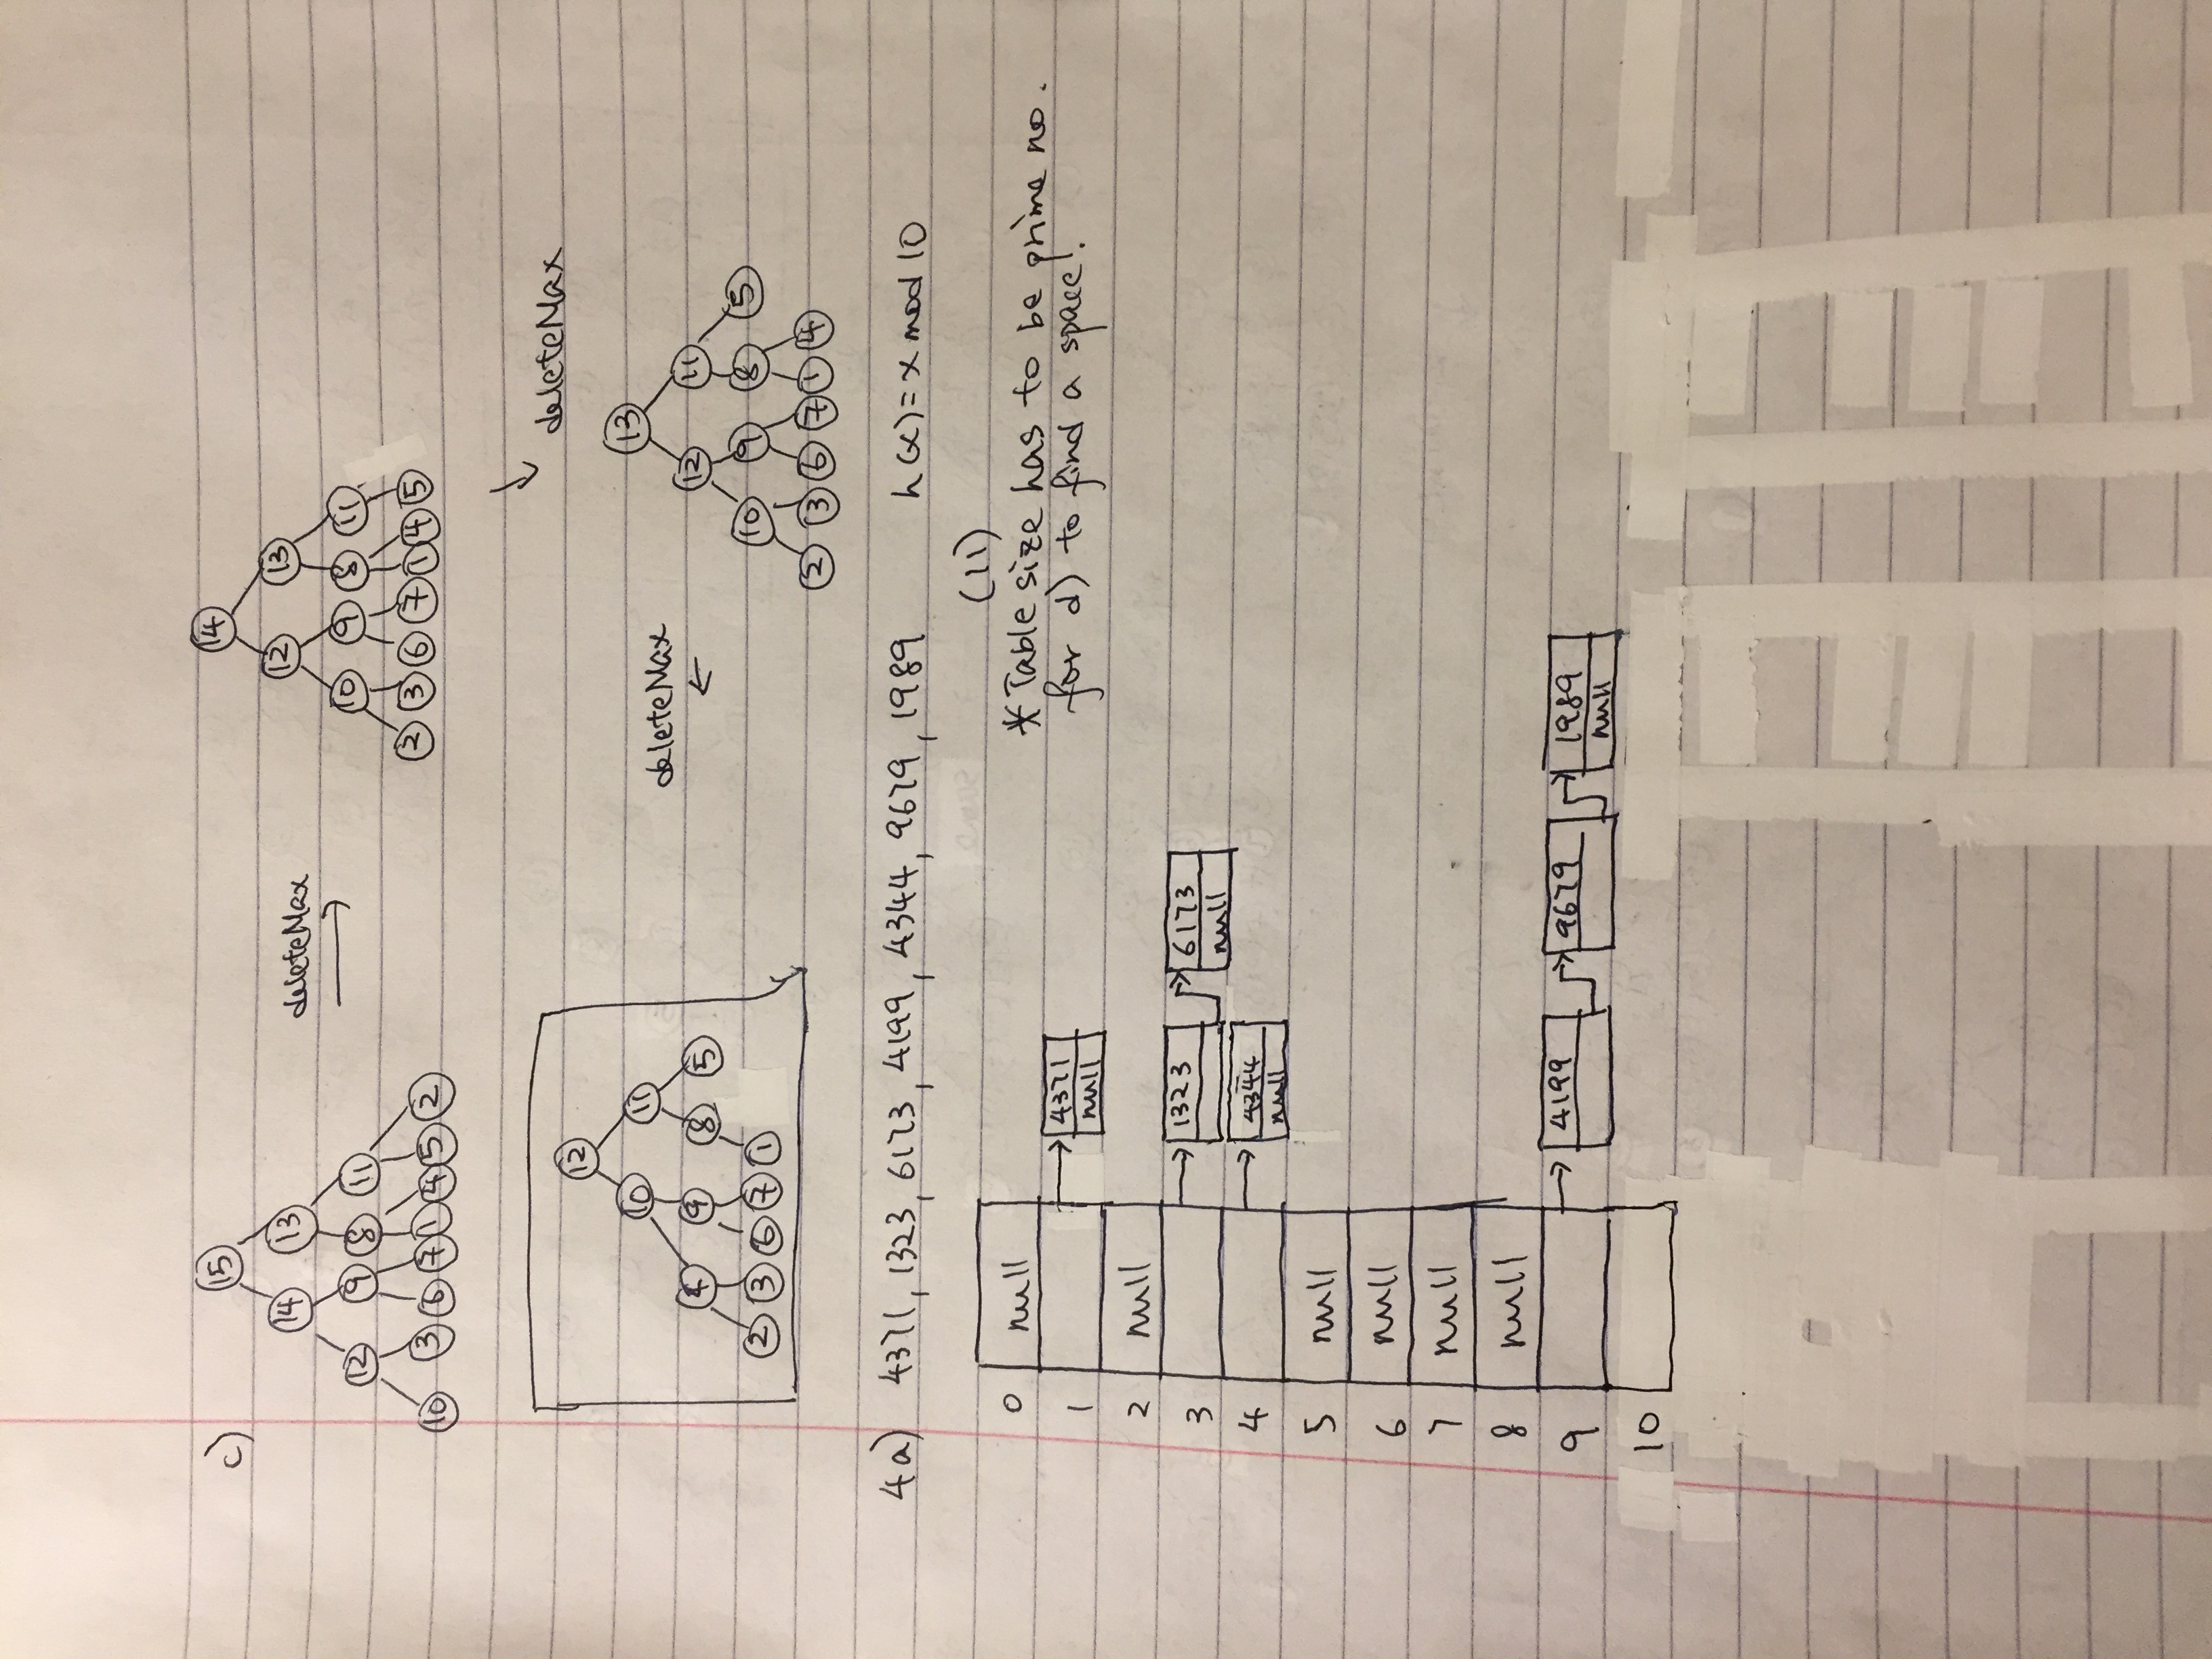 c)
15
14 13
12 9 8 11
10 3 6 7 1 4 5 2
deleteMax
14
12 13
10 9 8 11
2 3 6 7 1 4 5
deleteMax
13
12 11
10 9 8 5
2 3 6 7 1 4
deleteMax
12
10 11
4 9 8 5
2 3 6 7 1
4a) 4371, 1323, 6173, 4199, 4344, 9679, 1989 h(x)=x mod 10
(11)
* Table size has to be prime no.
for d) to find a space!
0 null
1 4371
null
2 null
3 1323 6173
null
4 4344
null
5 null
6 null
7 null
8 null
9 4199 9679 1989
null
10